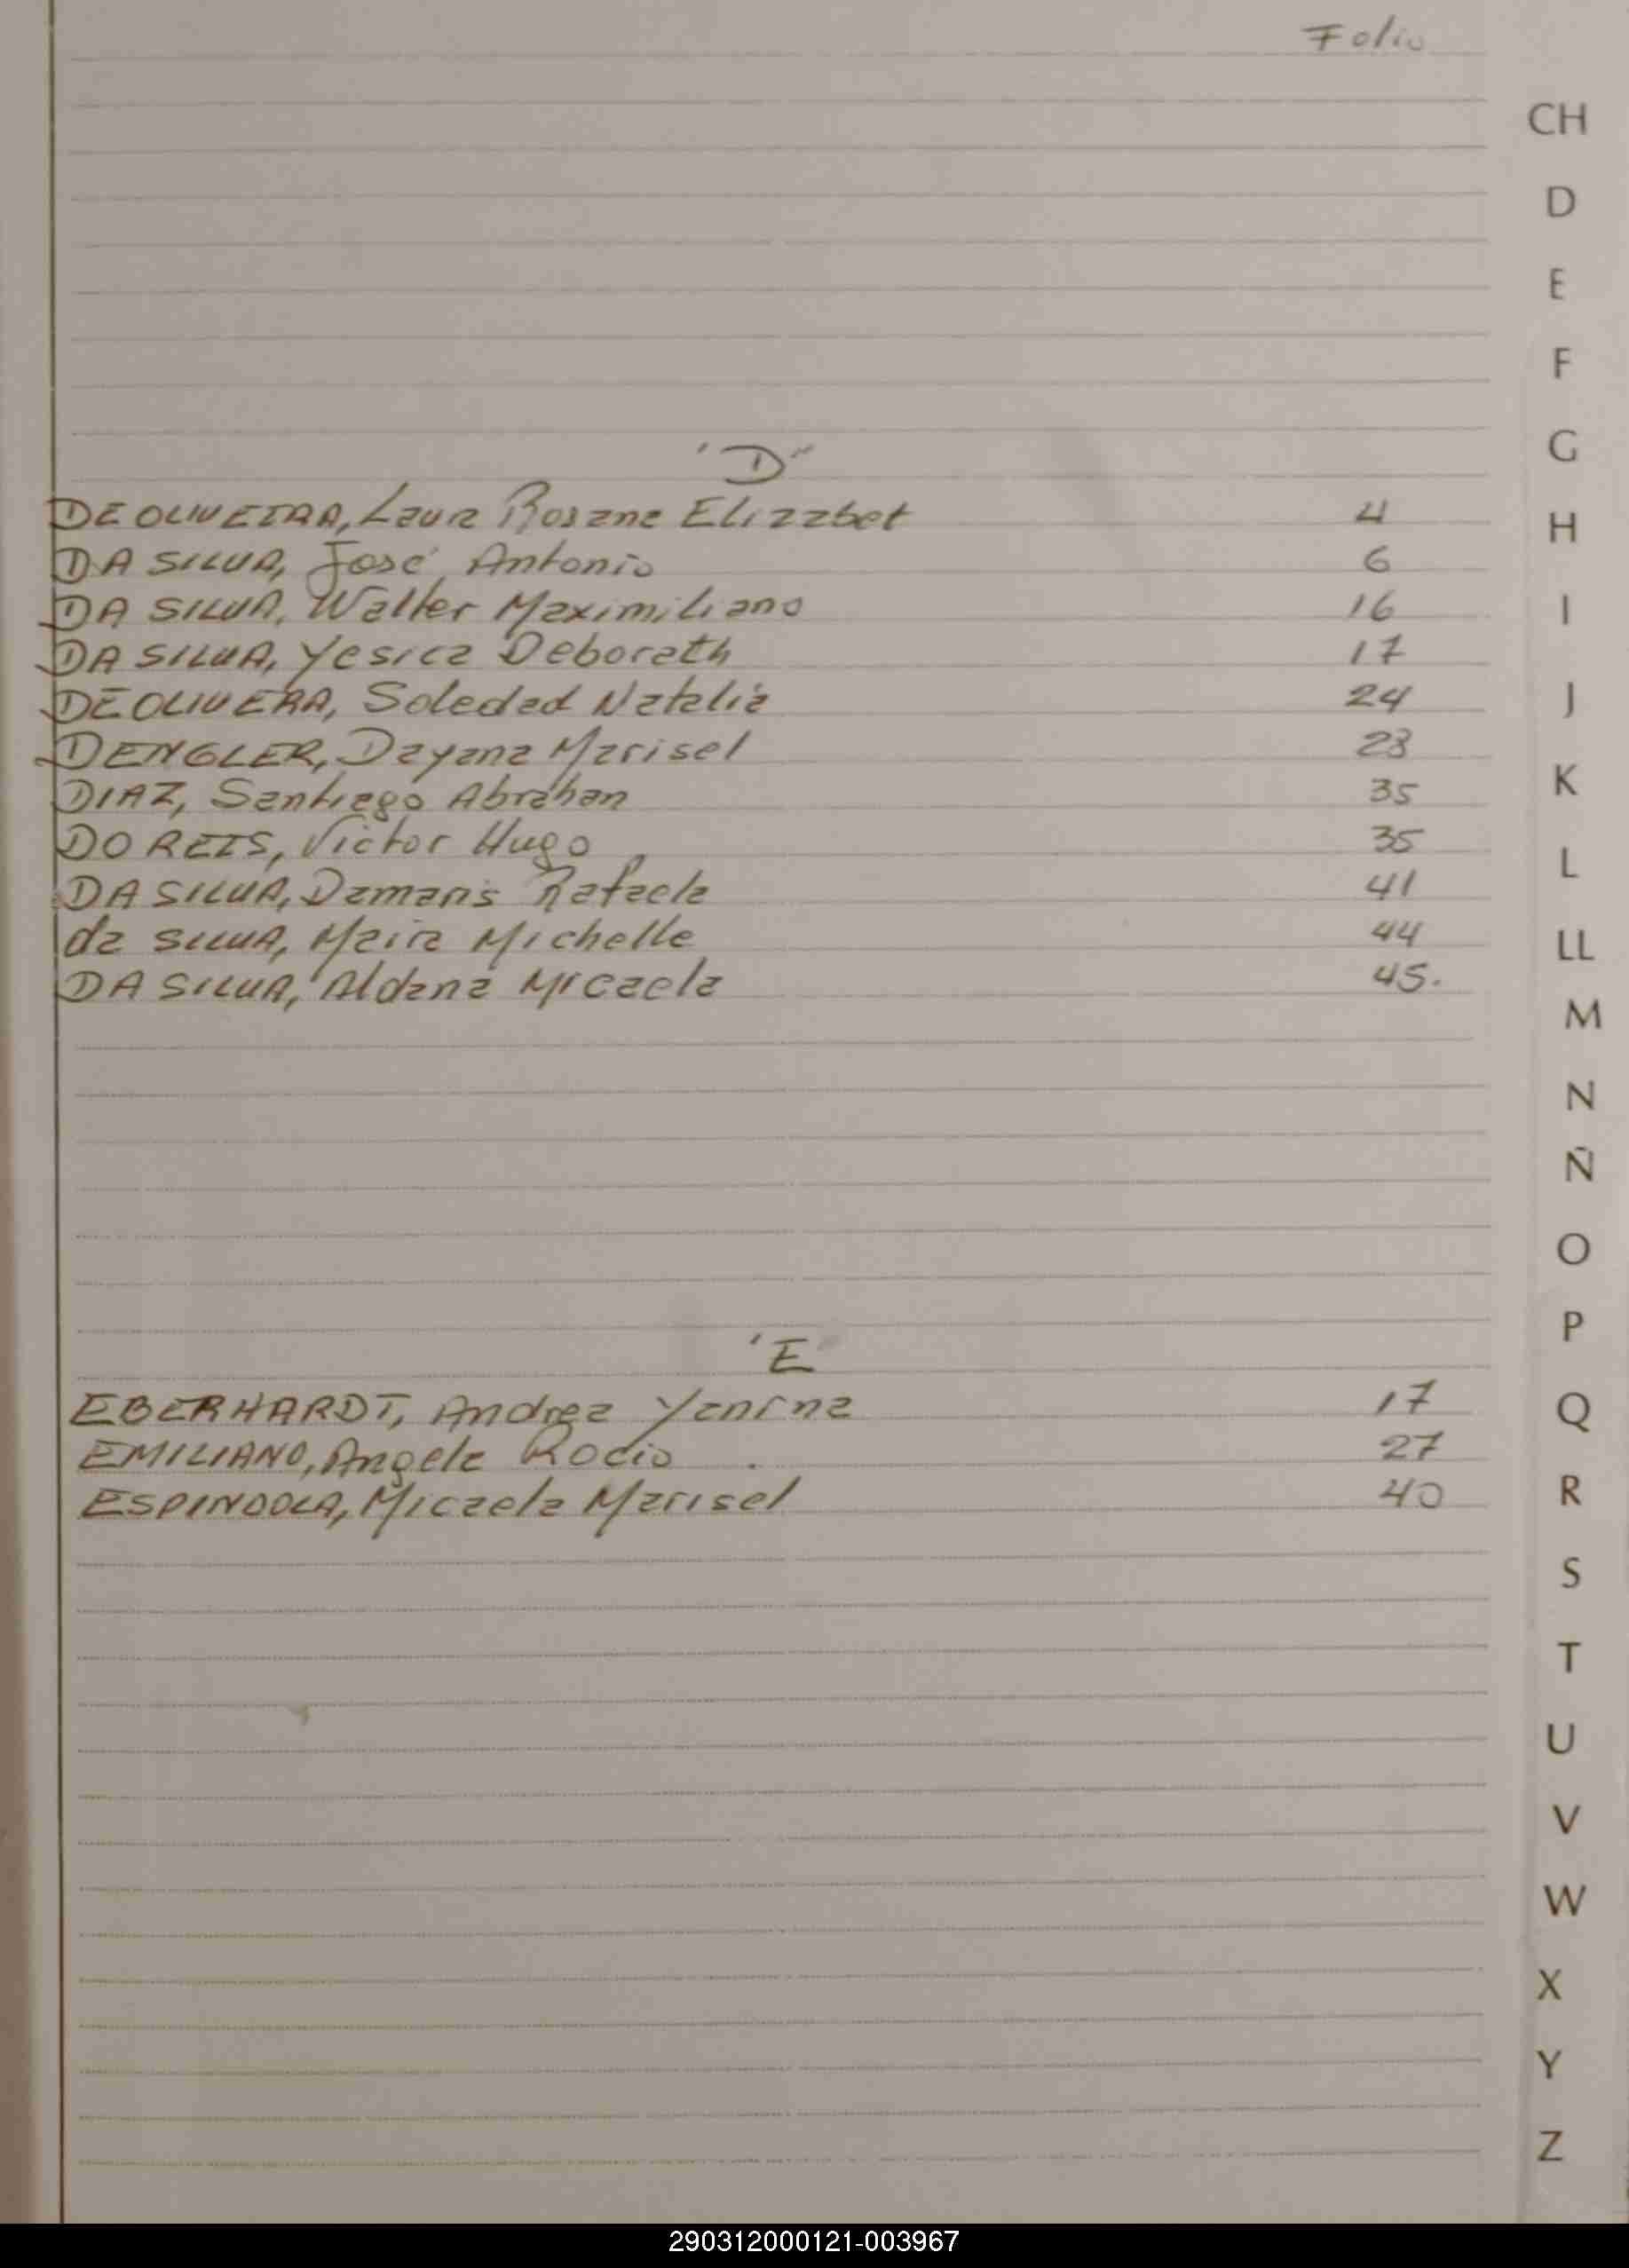 Folio
CH
D
E
F
G
"D"
DE OLIVEIRA, Laura Rosana Elizabet 4
H
DA SILVA, José Antonio 6
DA SILVA, Walter Maximiliano 16
I
DA SILVA, Yesica Deborath 17
DE OLIVERA, Soledad Natalia 24
J
DENGLER, Dayana Marisel 28
DIAZ, Santiago Abrahan 35
K
DO REIS, Victor Hugo 35
L
DA SILVA, Damaris Rafaela 41
da SILVA, Maira Michelle 44
LL
DA SILVA, Aldana Micaela 45.
M
N
Ñ
O
P
"E"
EBERHARDT, Andrea Yanina 17
Q
EMILIANO, Angela Rocio 27
ESPINDOLA, Micaela Marisel 40
R
S
T
U
V
W
X
Y
Z
290312000121-003967